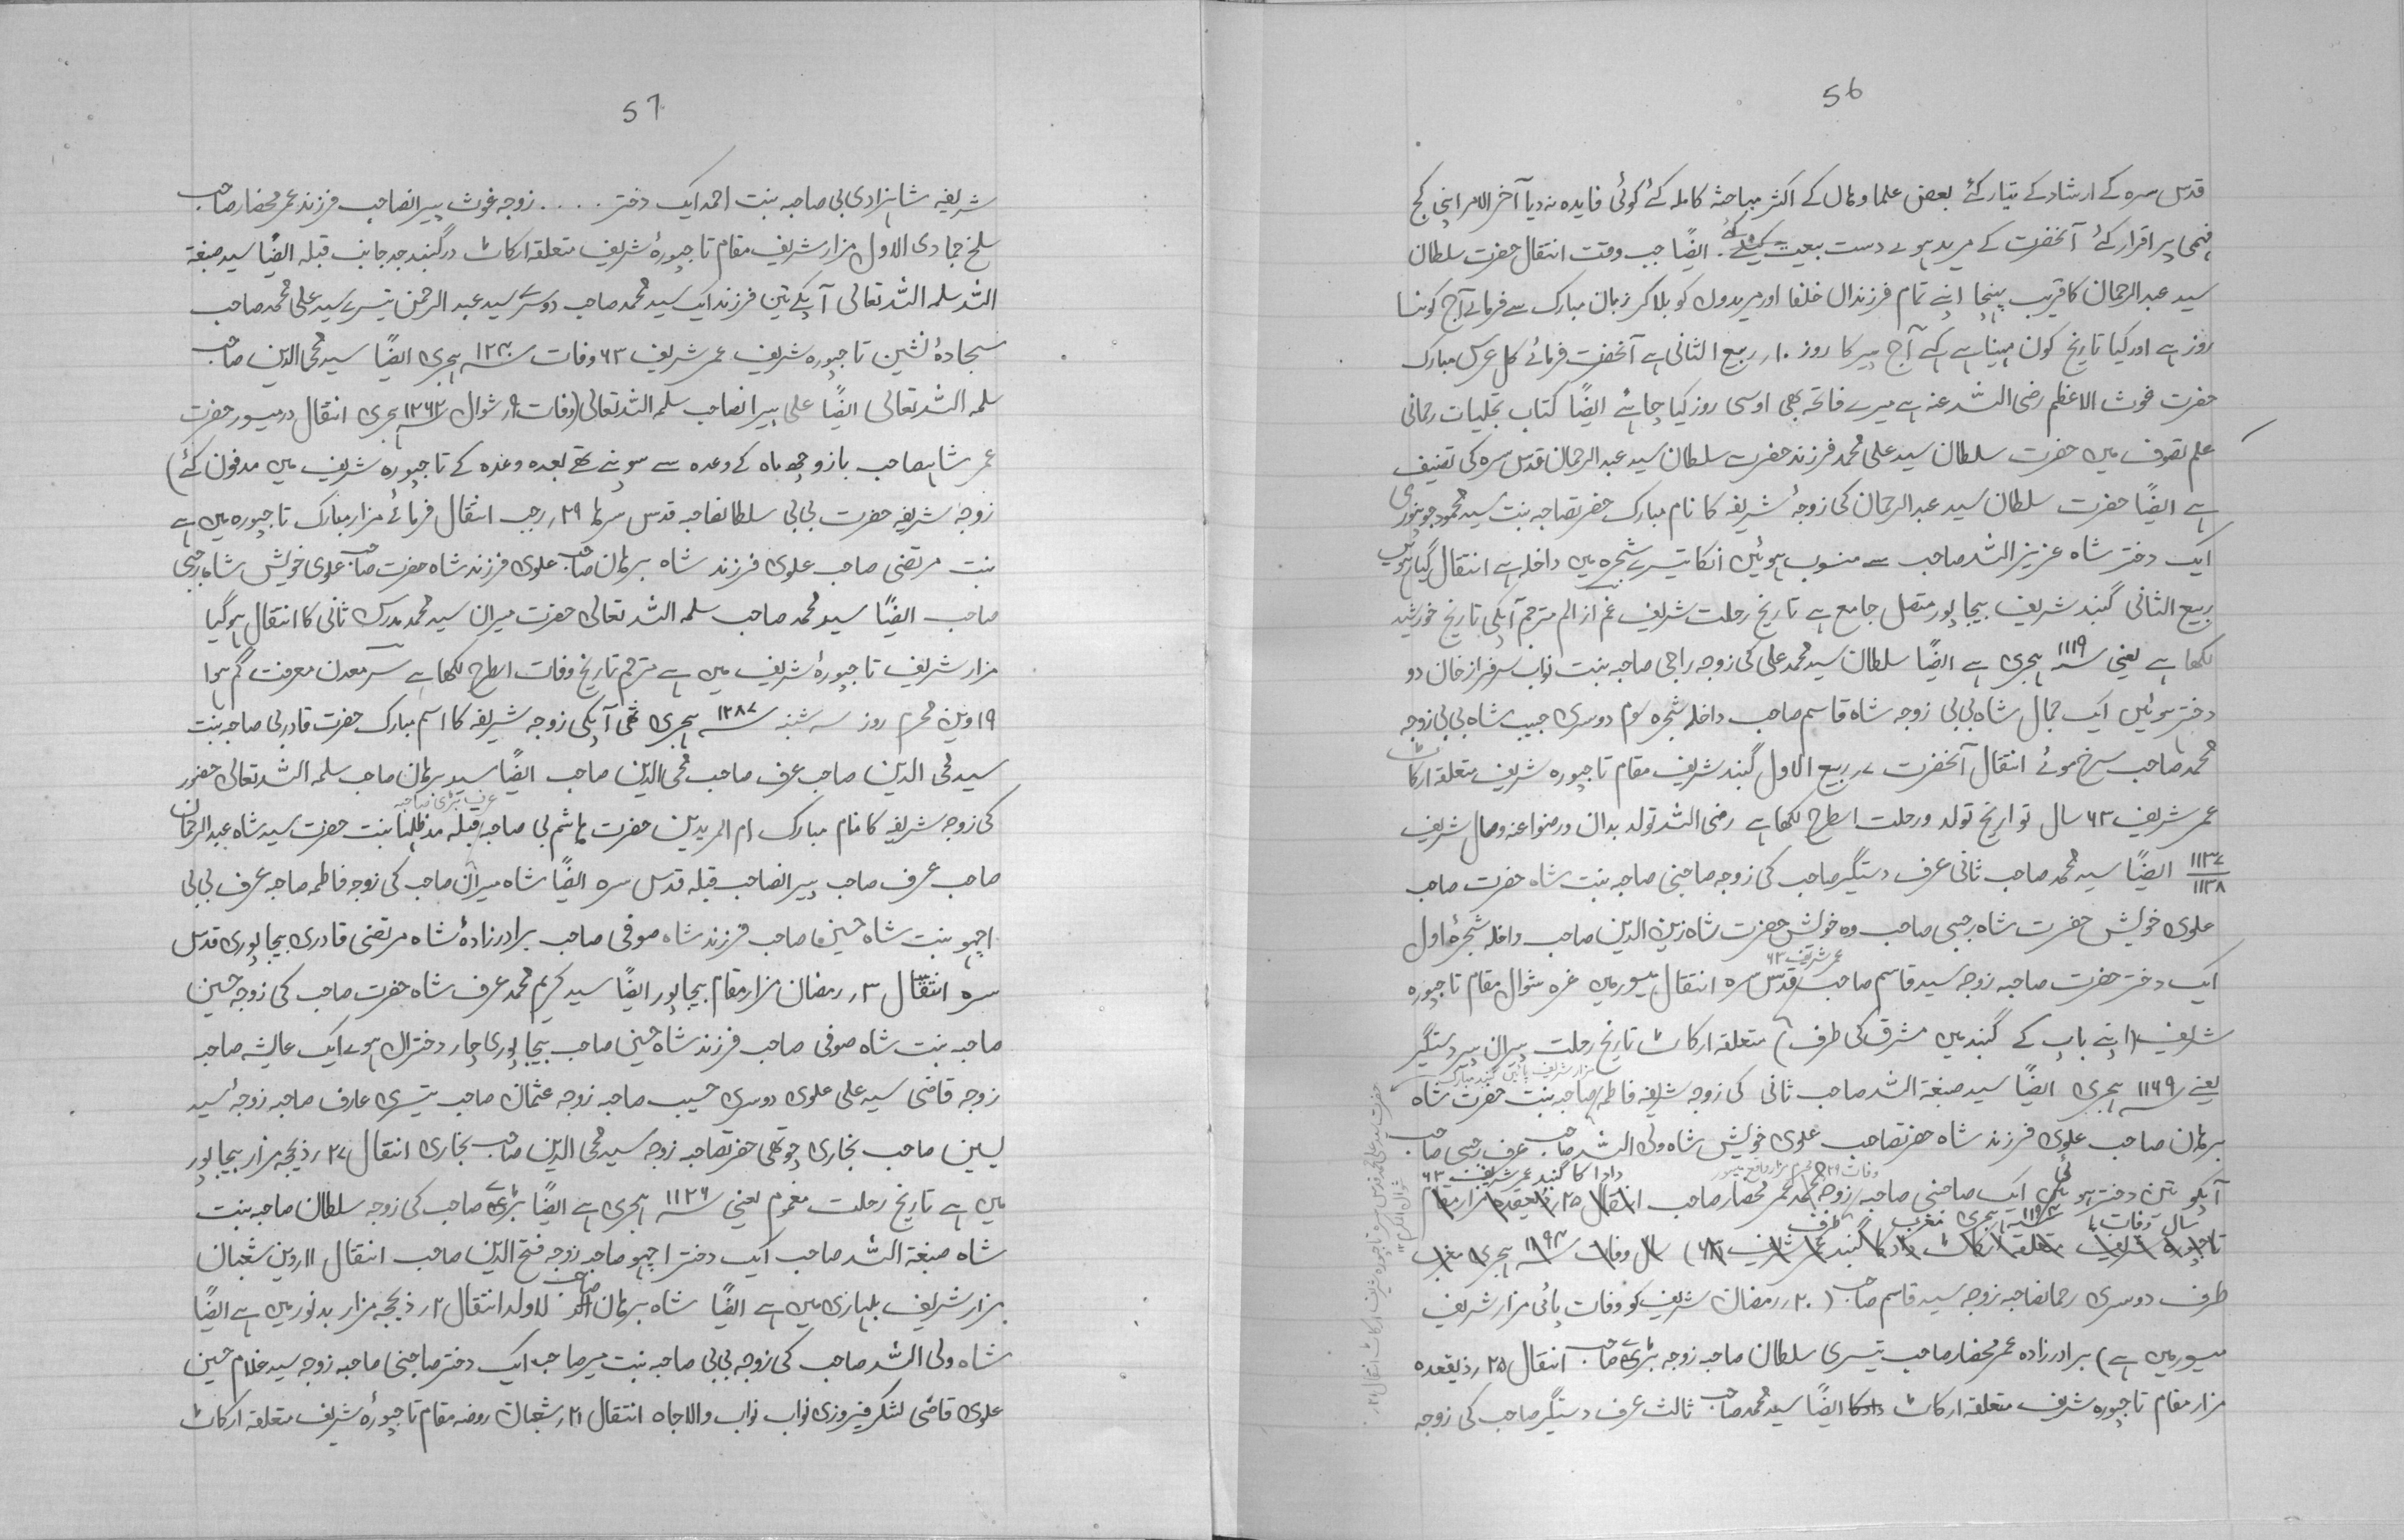 56
قدس سرہ کے ارشاد کے تیار کئے بعض علما وہاں کے اکثر مباحثہ کاملہ کئے کوئی فایدہ نہ دیا آخر الامر اپنی کج
فہمی پر اقرار کئے آنحضرت کے مرید ہوے دست بیعت کیئے۔ ایضًا جب وقت انتقال حضرت سلطان
سید عبدالرحمان کا قریب پہنچا اپنے تمام فرزندان خلفا اور مریدوں کو بلاکر زبان مبارک سے فرمائے آج کونسا
روز ہے اور کیا تاریخ کون مہینا ہے کہے آج پیر کا روز ۱۰ر ربیع الثانی ہے آنحضرت فرمائے کل عرس مبارک
حضرت غوث الاعظم رضی اللہ عنہ ہے میرے فاتحہ بھی اوسی روز کیا چاہئے ایضًا کتاب تجلیات رحمانی
علم تصوف میں حضرت سلطان سید علی محمد فرزند حضرت سلطان سید عبدالرحمان قدس سرہ کی تصنیف
ہے ایضًا حضرت سلطان سید عبدالرحمان کی زوجۂ شریفہ کا نام مبارک حضرتصاحبہ بنت سید محمود جونپوری
ایک دختر شاہ عزیز اللہ صاحب سے منسوب ہوئیں انکا تیسرے شجرہ میں داخلہ ہے انتقال گیارہویں
ربیع الثانی گنبد شریف بیجاپور متصل جامع ہے تاریخ رحلت شریف غم از الم مترجم آپکی تاریخ خورشید
لکھا ہے یعنی ۱۱۱۹ سنہ ہجری ہے ایضًا سلطان سید محمد علی کی زوجہ راجی صاحبہ بنت نواب سرفراز خان دو
دختر ہوئیں ایک جمال شاہ بی بی زوجہ شاہ قاسم صاحب داخلہ شجرہ سوم دوسری حبیب شاہ بی بی زوجہ
محمد صاحب سرخ موئے انتقال آنحضرت ۷ر ربیع الاول گنبد شریف مقام تاجپورہ شریف متعلقہ ارکاٹ
عمر شریف ۶۳ سال تواریخ تولد و رحلت اسطرح لکھا ہے رضی اللہ تولد بدان و رضوا عنہ وصال شریف
۱۱۳۷
۱۱۳۸ ایضًا سید محمد صاحب ثانی عرف دستگیر صاحب کی زوجہ صاحبنی صاحبہ بنت شاہ حضرت صاحب
علوی خویش حضرت شاہ رجبی صاحب وہ خویش حضرت شاہ زین الدین صاحب داخلہ شجرۂ اول
عمر شریف ۶۳
ایک دختر حضرت صاحبہ زوجہ سید قاسم صاحب قدس سرہ انتقال میسور میں غرہ شوال مقام تاجپورہ
شریف (اپنے باپ کے گنبد میں مشرق کی طرف) متعلقہ ارکاٹ تاریخ رحلت پیران پیر دستگیر
مزار شریف پائین گنبد مبارک
یعنے ۱۱۶۹ سنہ ہجری ایضًا سید صبغۃ اللہ صاحب ثانی کی زوجہ شریفہ فاطمہ صاحبہ بنت حضرت شاہ
برہان صاحب علوی فرزند شاہ حضرتصاحب علوی خویش شاہ ولی اللہ صاحب عرف رجبی صاحب
دادا کا گنبد عمر شریف ۶۳
آپکو تین دختر ہوئی ایک صاحبنی صاحبہ زوجہ محمد عمر محضار صاحب انتقال ۲۵ر ذیقعدہ مزار مقام
سال وفات ۱۱۹۴ سنہ ہجری مغرب طرف
تاجپورہ شریف متعلقہ ارکاٹ دادا کا گنبد عمر شریف سال وفات ۱۱۹۴ سنہ ہجری مغرب
طرف دوسری رحمانصاحبہ زوجہ سید قاسم صاحب (۲۰ر رمضان شریف کو وفات پائی مزار شریف
میسور میں ہے) برادر زادہ عمر محضار صاحب تیسری سلطان صاحبہ زوجہ بڑے صاحب انتقال ۲۵ر ذیقعدہ
مزار مقام تاجپورہ شریف متعلقہ ارکاٹ دادکا ایضًا سید محمد صاحب ثالث عرف دستگیر صاحب کی زوجہ
57
شریفہ شاہزادی بی صاحبہ بنت احمد ایک دختر .... زوجہ غوث پیرانصاحب فرزند عمر محضار صاحب
سلخ جمادی الاول مزار شریف مقام تاجپورۂ شریف متعلقہ ارکاٹ در گنبد جد جانب قبلہ ایضًا سید صبغۃ
اللہ سلمہ اللہ تعالی آپکے تین فرزند ایک سید محمد صاحب دوسرے سید عبدالرحمن تیسرے سید علی محمد صاحب
سجادۂ نشین تاجپورہ شریف عمر شریف ۶۳ وفات سنہ ۱۲۳۰ ہجری ایضًا سید محی الدین صاحب
سلمہ اللہ تعالی ایضًا علی پیرانصاحب سلمہ اللہ تعالی (وفات ۹ر شوال ۱۲۶۲ سنہ ہجری انتقال در میسور حضرت
عمر شاہصاحب بازو چھ ماہ کے وعدہ سے سونپے تھے بعدہ وعدہ کے تاجپورہ شریف میں مدفون کئے)
زوجہ شریفہ حضرت بی بی سلطانصاحبہ قدس سرہا ۲۹ر رجب انتقال فرمائے مزار مبارک تاجپورہ میں ہے
بنت مرتضی صاحب علوی فرزند شاہ برہان صاحب علوی فرزند شاہ حضرت صاحب علوی خویش شاہ رجبی
صاحب ایضًا سید محمد صاحب سلمہ اللہ تعالی حضرت میران سید محمد مدرس ثانی کا انتقال ہوگیا
مزار شریف تاجپورۂ شریف میں ہے مترجم تاریخ وفات اسطرح لکھا ہے سر معدن معرفت گم ہوا
۱۹ وین محرم روز سہ شنبہ ۱۲۸۷ سنہ ہجری تھی آپکی زوجہ شریفہ کا اسم مبارک حضرت قادر بی صاحبہ بنت
سید محی الدین صاحب عرف صاحب محی الدین صاحب ایضًا سید برہان صاحب سلمہ اللہ تعالی حضور
عرف بڑی صاحبہ
کی زوجہ شریفہ کا نام مبارک ام المریدین حضرت ہاشم بی صاحبہ قبلہ مدظلہا بنت حضرت سید شاہ عبدالرحمان
صاحب عرف صاحب پیرانصاحب قبلہ قدس سرہ ایضًا شاہ میران صاحب کی زوجہ فاطمہ صاحبہ عرف بی بی
اچھو بنت شاہ حسین صاحب فرزند شاہ صوفی صاحب برادر زادۂ شاہ مرتضی قادری بیجاپوری قدس
سرہ انتقال ۳ر رمضان مزار مقام بیجاپور ایضًا سید کریم محمد عرف شاہ حضرت صاحب کی زوجہ حسین
صاحبہ بنت شاہ صوفی صاحب فرزند شاہ حسین صاحب بیجاپوری چار دختران ہوے ایک عایشہ صاحبہ
زوجہ قاضی سید علی علوی دوسری حبیب صاحبہ زوجہ عثمان صاحب تیسری عارف صاحبہ زوجۂ سید
یسین صاحب بخاری چوتھی حضرتصاحبہ زوجہ سید محی الدین صاحب بخاری انتقال ۲۷ر ذیحجہ مزار بیجاپور
میں ہے تاریخ رحلت مغموم یعنی ۱۱۲۶ سنہ ہجری ہے ایضًا بڑے صاحب کی زوجہ سلطان صاحبہ بنت
شاہ صبغۃ اللہ صاحب ایک دختر اچھو صاحبہ زوجہ فتح الدین صاحب انتقال ۱۱ر وین شعبان
مزار شریف بلہاری میں ہے ایضًا شاہ برہان صاحب لاولد انتقال ۲ر ذیحجہ مزار بدنور میں ہے ایضًا
شاہ ولی اللہ صاحب کی زوجہ بی بی صاحبہ بنت میر صاحب ایک دختر صاحبنی صاحبہ زوجہ سید غلام حسین
علوی قاضی لشکر فیروزی نواب نواب والاجاہ انتقال ۲۱ر شعبان روضہ مقام تاجپورۂ شریف متعلقہ ارکاٹ